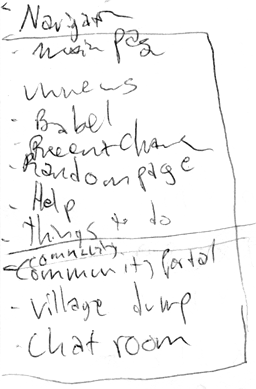 Navigation
- main page
unnews
- Babel
- Recent Chan
- Random page
- Help
- Things to do
community
Community portal
- Village dump
- Chat room